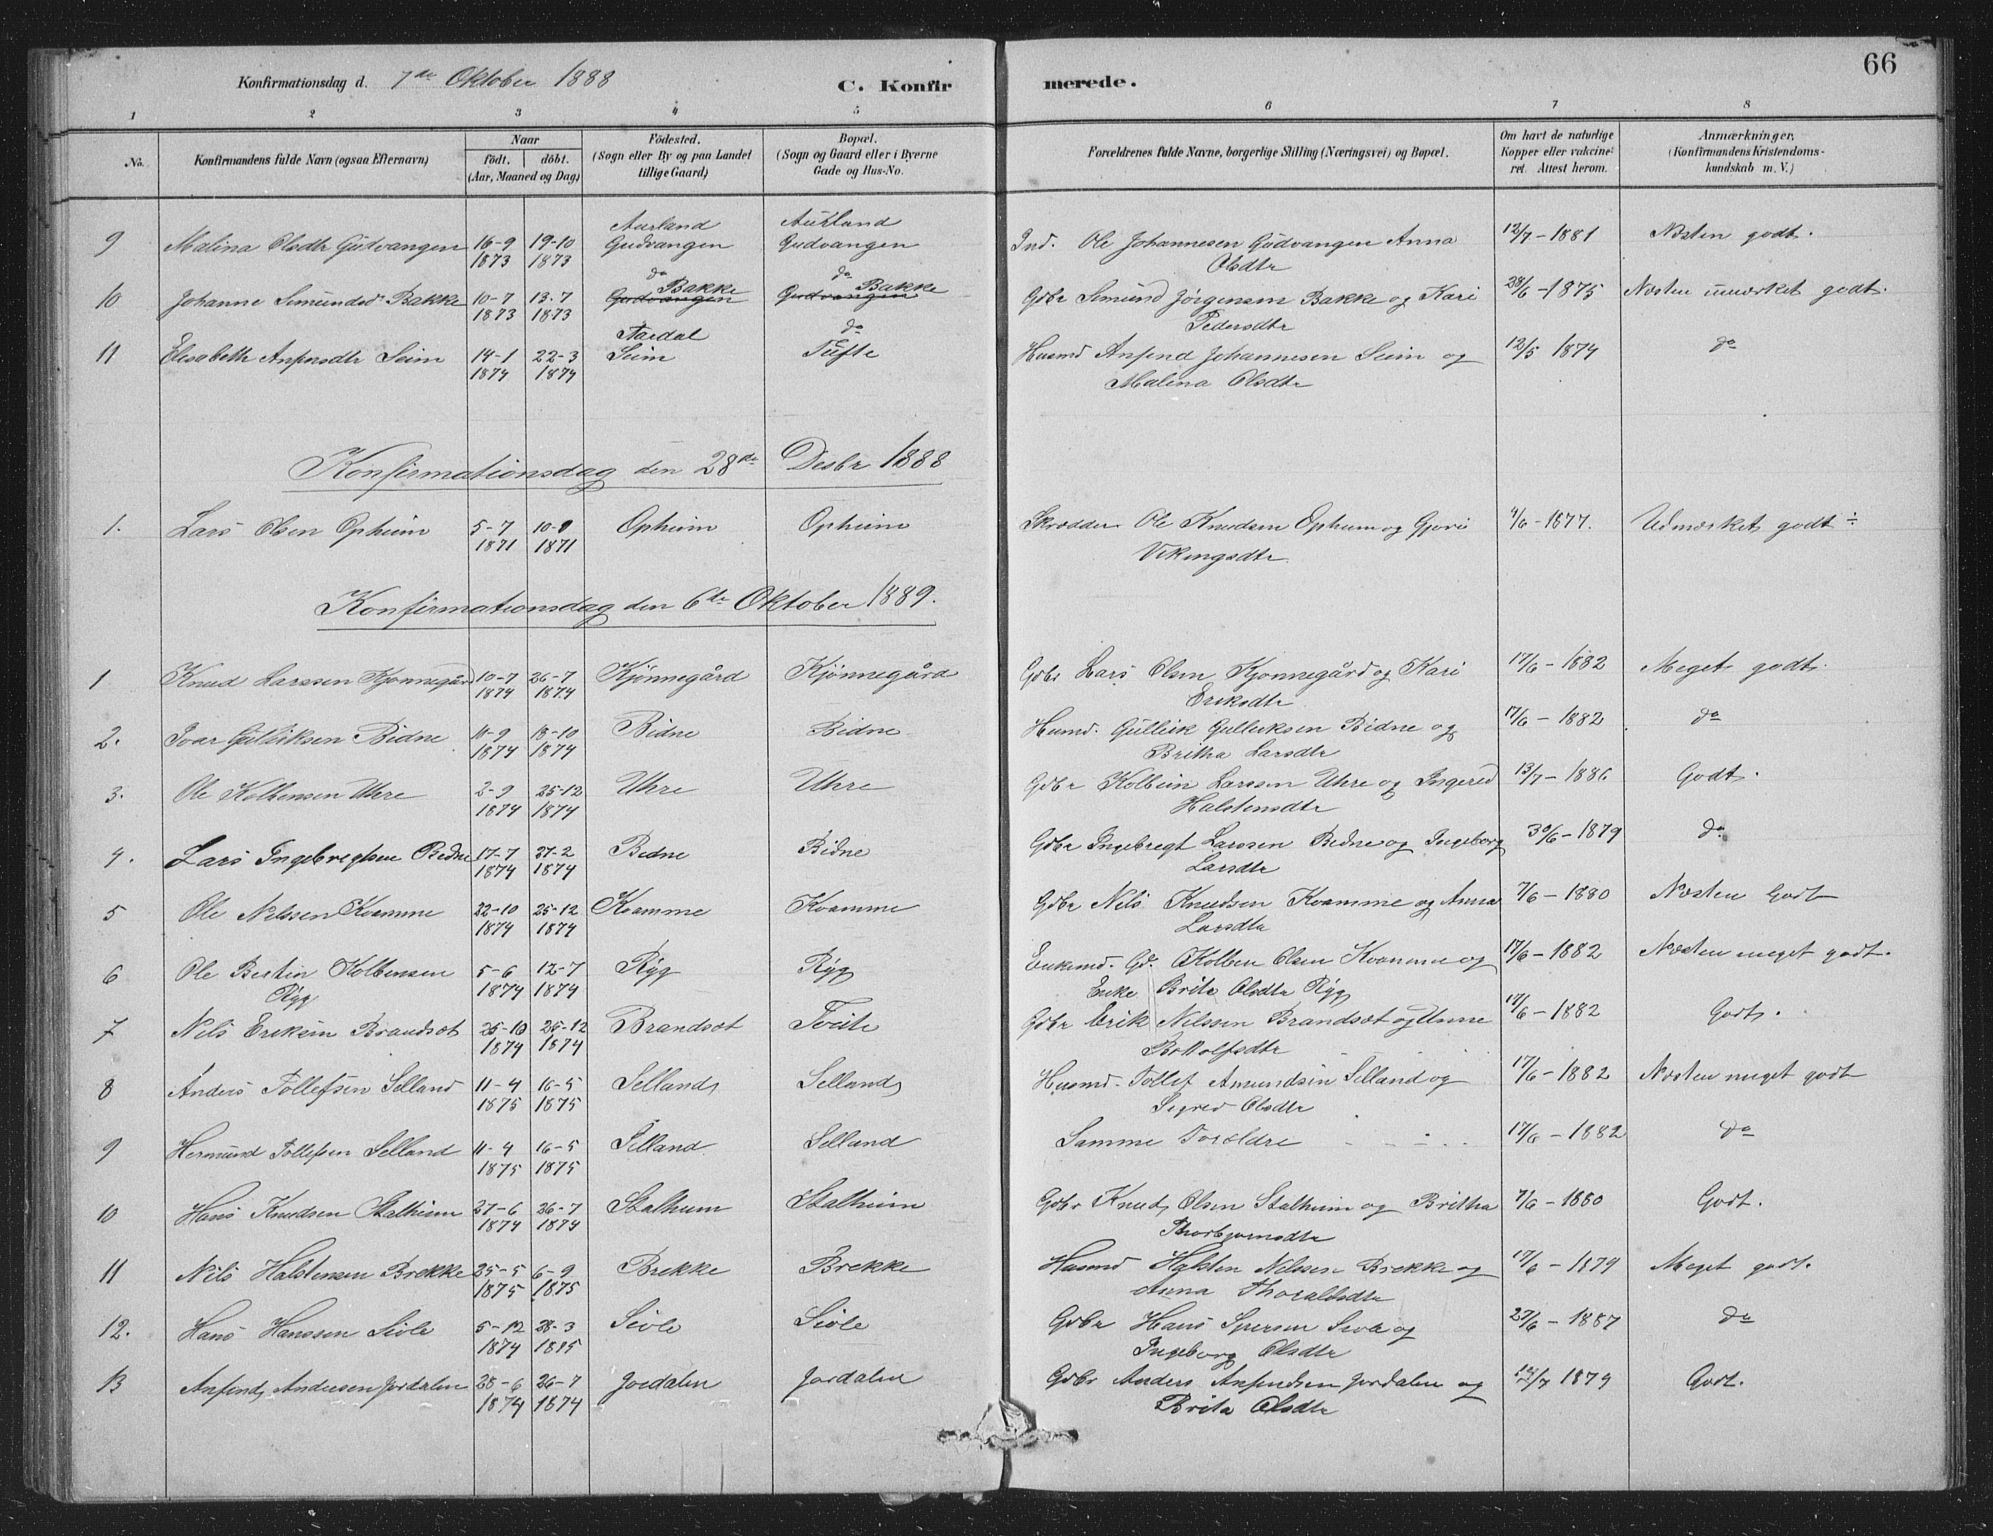 66
Konfirmationsdag d. 7de Oktober 1888 C. Konfir merede.
1 2 3 4 5 6 7 8
No. Konfirmandens fulde Navn (ogsaa Efternavn) Naar födt. döbt. (Aar, Maaned og Dag) Födested. (Sogn eller By og paa Landet tillige Gaard) Bopæl. (Sogn og Gaard eller i Byerne Gade og Hus-No. Forældrenes fulde Navne, borgerlige Stilling (Næringsvei) og Bopæl. Om havt de naturlige Kopper eller vaccineret. Attest herom. Anmærkninger. (Konfirmandens Kristendomskundskab m. V.)
Aurland Aurland
9 Malina Olsdtr Gudvangen 16-9 19-10 Gudvangen Gudvangen Ind. Ole Johannesen Gudvangen Anna 12/7-1881 Næsten godt.
1873 1873 Olsdtr
do Bakke do Bakke
10 Johanne Simundsd. Bakke 10-7 13-7 Gudvangen Gudvangen Gdbr Simund Jørgensen Bakke og Kari 28/6-1875 Næsten udmærket godt.
1873 1873 Pedersdtr
do
11 Elisabeth Anfinsdtr Seim 14-1 22-3 Seim Tufte Husmd Anfind Johannesen Seim og 12/5 1874 do
1874 1874 Malina Olsdtr
Konfirmationsdag den 28de Desbr 1888
1. Lars Olsen Opheim 5-7 10-9 Opheim Opheim Skrædder Ole Knudsen Opheim og Gjori 4/6-1877. Udmærket godt ÷
1871 1871 Vikingsdtr
Konfirmationsdag den 6te Oktober 1889.
1 Knud Larssen Kjønnegård 10-7 26-7 Kjønnegård Kjønnegård Gdbr Lars Olsen Kjønnegård og Kari 17/6-1882 Meget godt.
1874 1874 Eriksdtr
2. Ivar Gulliksen Bidne 18-10 Bidne Bidne Husmd. Gulleik Gulleiksen Bidne og 17/6-1882 do
1874 1874 Britha Larsdtr
3. Ole Kolbensen Uhre 2-9 25-12 Uhre Uhre Gdbr Kolbein Larssen Uhre og Ingered 13/7-1886 Godt.
1874 1874 Halstensdtr
4. Lars Ingebregtsen Bidne 17-7 27-2 Bidne Bidne Gdbr Ingebregt Larssen Bidne og Ingeborg 30/6-1879 do
1874 1874 Larsdtr
5 Ole Nilssen Kvamme 22-10 25-12 Kvamme Kvamme Gdbr Nils Knudsen Kvamme og Anna 7/6-1880 Næsten Godt
1874 1874 Larsdtr
6 Ole Bertin Kolbensen 5-6 12-7 Ryg Ryg Enkemd. Gd. Kolben Olsen Kvamme og 17/6-1882 Næsten meget godt.
Ryg 1874 1874 Enke Brita Olsdtr Ryg
7 Nils Eriksen Brandset 25-10 26-12 Brandset Tveite Gdbr Erik Nilssen Brandset og Unne 17/6-1882 Godt.
1874 1874 Botolfsdtr
8 Anders Tollefsen Selland 11-4 16-5 Selland Selland Husmd. Tollef Amundsen Selland og 17/6-1882 Næsten meget godt
1875 1875 Sigrid Olsdtr
9 Hermund Tollefsen Selland 11-4 16-5 Selland Selland Samme Forældre 17/6-1882 do
1875 1875
10 Hans Knudsen Stalheim 27-6 26-7 Stalheim Stalheim Gdbr Knud Olsen Stalheim og Britha 7/6-1880 Godt.
1874 1874 Thorbjørnsdtr
11 Nils Halstensen Brekke 25-5 6-9 Brekke Brekke Husmd Halsten Nilssen Brekke og 17/6-1879 Meget godt.
1875 1875 Anna
12. Hans Hanssen Sivle 5-12 28-3 Sivle Sivle Gdbr Hans Sjursen Sivle og 22/6-1887 do
1874 Ingeborg Olsdtr
13 Anfind Andersen Jordalen 28-6 26-7 Jordalen Jordalen Gdbr Anders Anfindsen Jordalen og 12/7 1879 Godt.
1874 1874 Brita Olsdtr